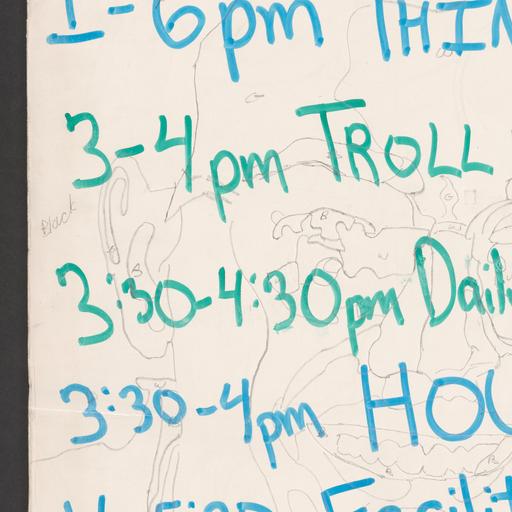 1-6pm THIN
3-4pm TROLL
Black
3:30-4:30pm Daily
3:30-4pm HOU